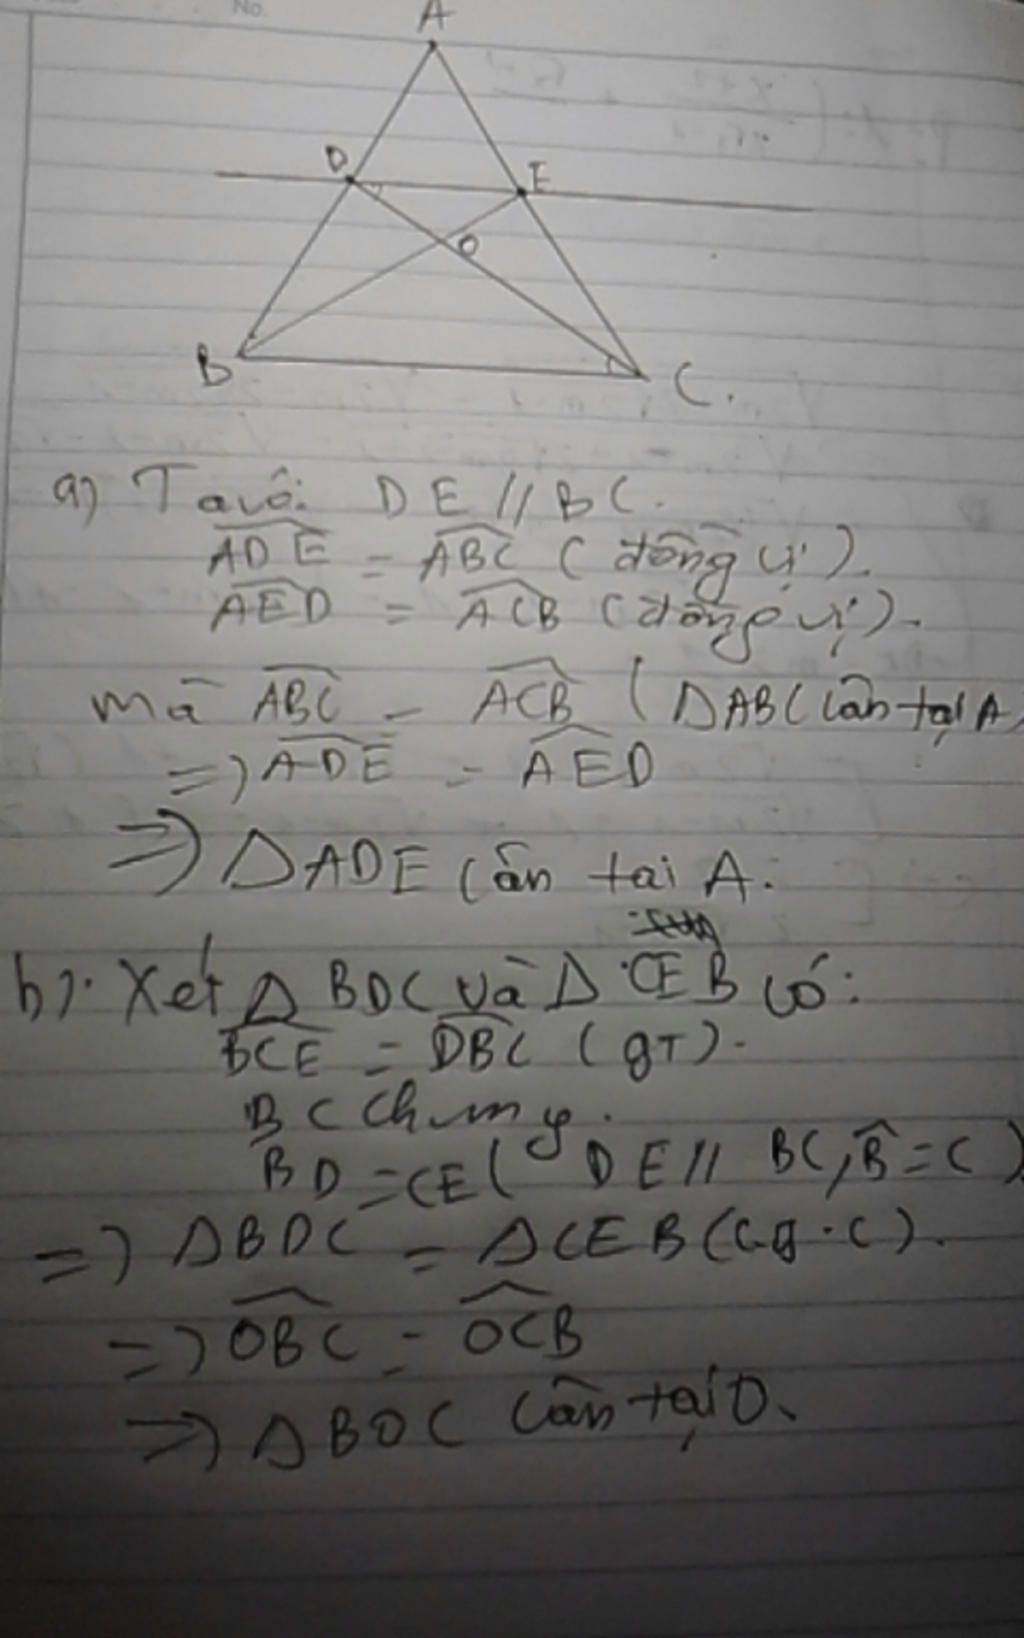 No.
A
D E
O
B C.
a) Ta có: DE // BC.
ADE = ABC (đồng vị).
AED = ACB (đồng vị).
mà ABC = ACB (ΔABC cân tại A)
=> ADE = AED
=> ΔADE cân tai A.
b). Xét Δ BDC và Δ CEB có:
BCE = DBC (gT).
BC chung.
BD = CE ( DE // BC, B̂ = C)
=> ΔBDC = ΔCEB (c.g.c).
=> OBC = OCB
=> ΔBOC cân tại O.